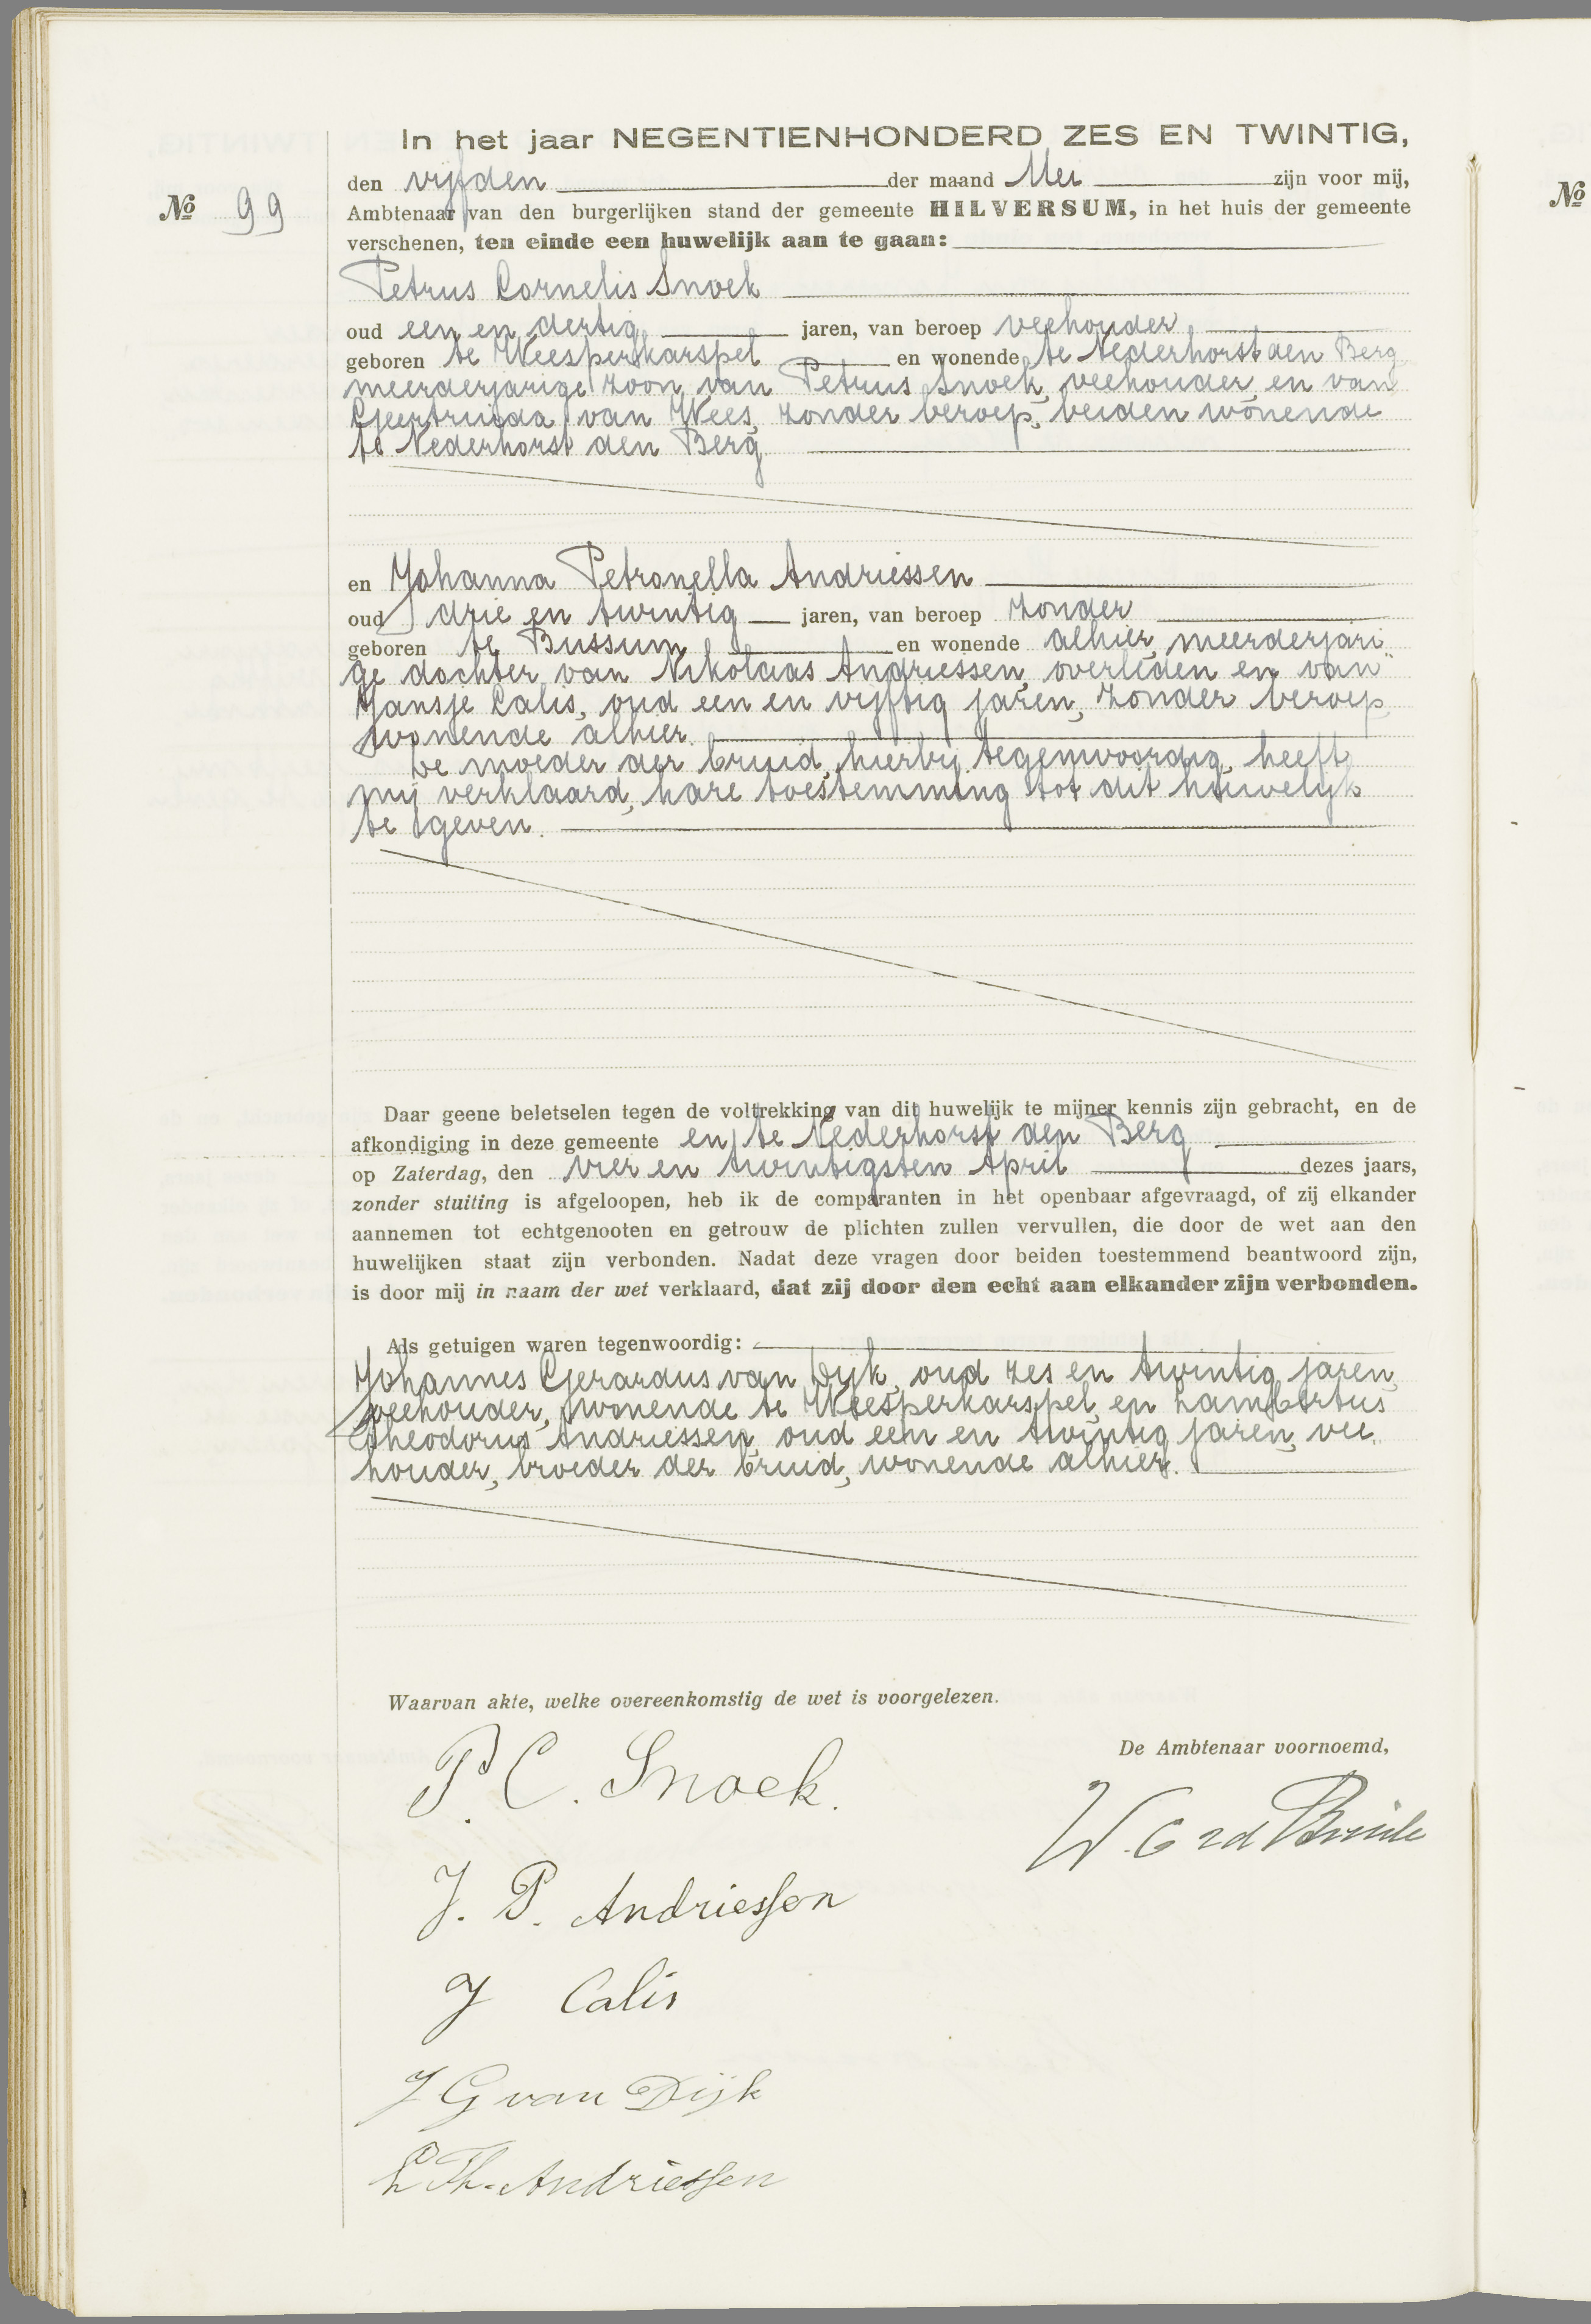 In het jaar NEGENTIENHONDERD ZES EN TWINTIG,
den vijfden der maand Mei zijn voor mij,
№ 99
Ambtenaar van den burgerlijken stand der gemeente HILVERSUM, in het huis der gemeente
verschenen, ten einde een huwelijk aan te gaan:
Petrus Cornelis Snoek
oud een en dertig jaren, van beroep veehouder,
geboren te Weesperkarspel en wonende te Nederhorst den Berg
meerderjarige zoon van Petrus Snoek, veehouder, en van
Geertruida van Wees, zonder beroep, beiden wonende
te Nederhorst den Berg
en Johanna Petronella Andriessen
oud drie en twintig jaren, van beroep zonder
geboren te Bussum en wonende alhier, meerderjari
ge dochter van Nikolaas Andriessen, overleden en van
Jansje Calis, oud een en vijftig jaren, zonder beroep
wonende alhier.
De moeder der bruid, hierbij tegenwoordig, heeft
mij verklaard, hare toestemming tot dit huwelijk
te geven.
Daar geene beletselen tegen de voltrekking van dit huwelijk te mijner kennis zijn gebracht, en de
afkondiging in deze gemeente en te Nederhorst den Berg
op Zaterdag, den vier en twintigsten April dezes jaars,
zonder stuiting is afgeloopen, heb ik de comparanten in het openbaar afgevraagd, of zij elkander
aannemen tot echtgenooten en getrouw de plichten zullen vervullen, die door de wet aan den
huwelijken staat zijn verbonden. Nadat deze vragen door beiden toestemmend beantwoord zijn,
is door mij in naam der wet verklaard, dat zij door den echt aan elkander zijn verbonden.
Als getuigen waren tegenwoordig:
Johannes Gerardus van Dijk, oud zes en twintig jaren,
veehouder, wonende te Weesperkarspel, en Lambertus
Theodorus Andriessen, oud een en twintig jaren, vee
houder, broeder der bruid, wonende alhier.
Waarvan akte, welke overeenkomstig de wet is voorgelezen.
De Ambtenaar voornoemd,
P. C. Snoek.
J. P. Andriessen
J Calis
J G van Dijk
L Th. Andriessen
№